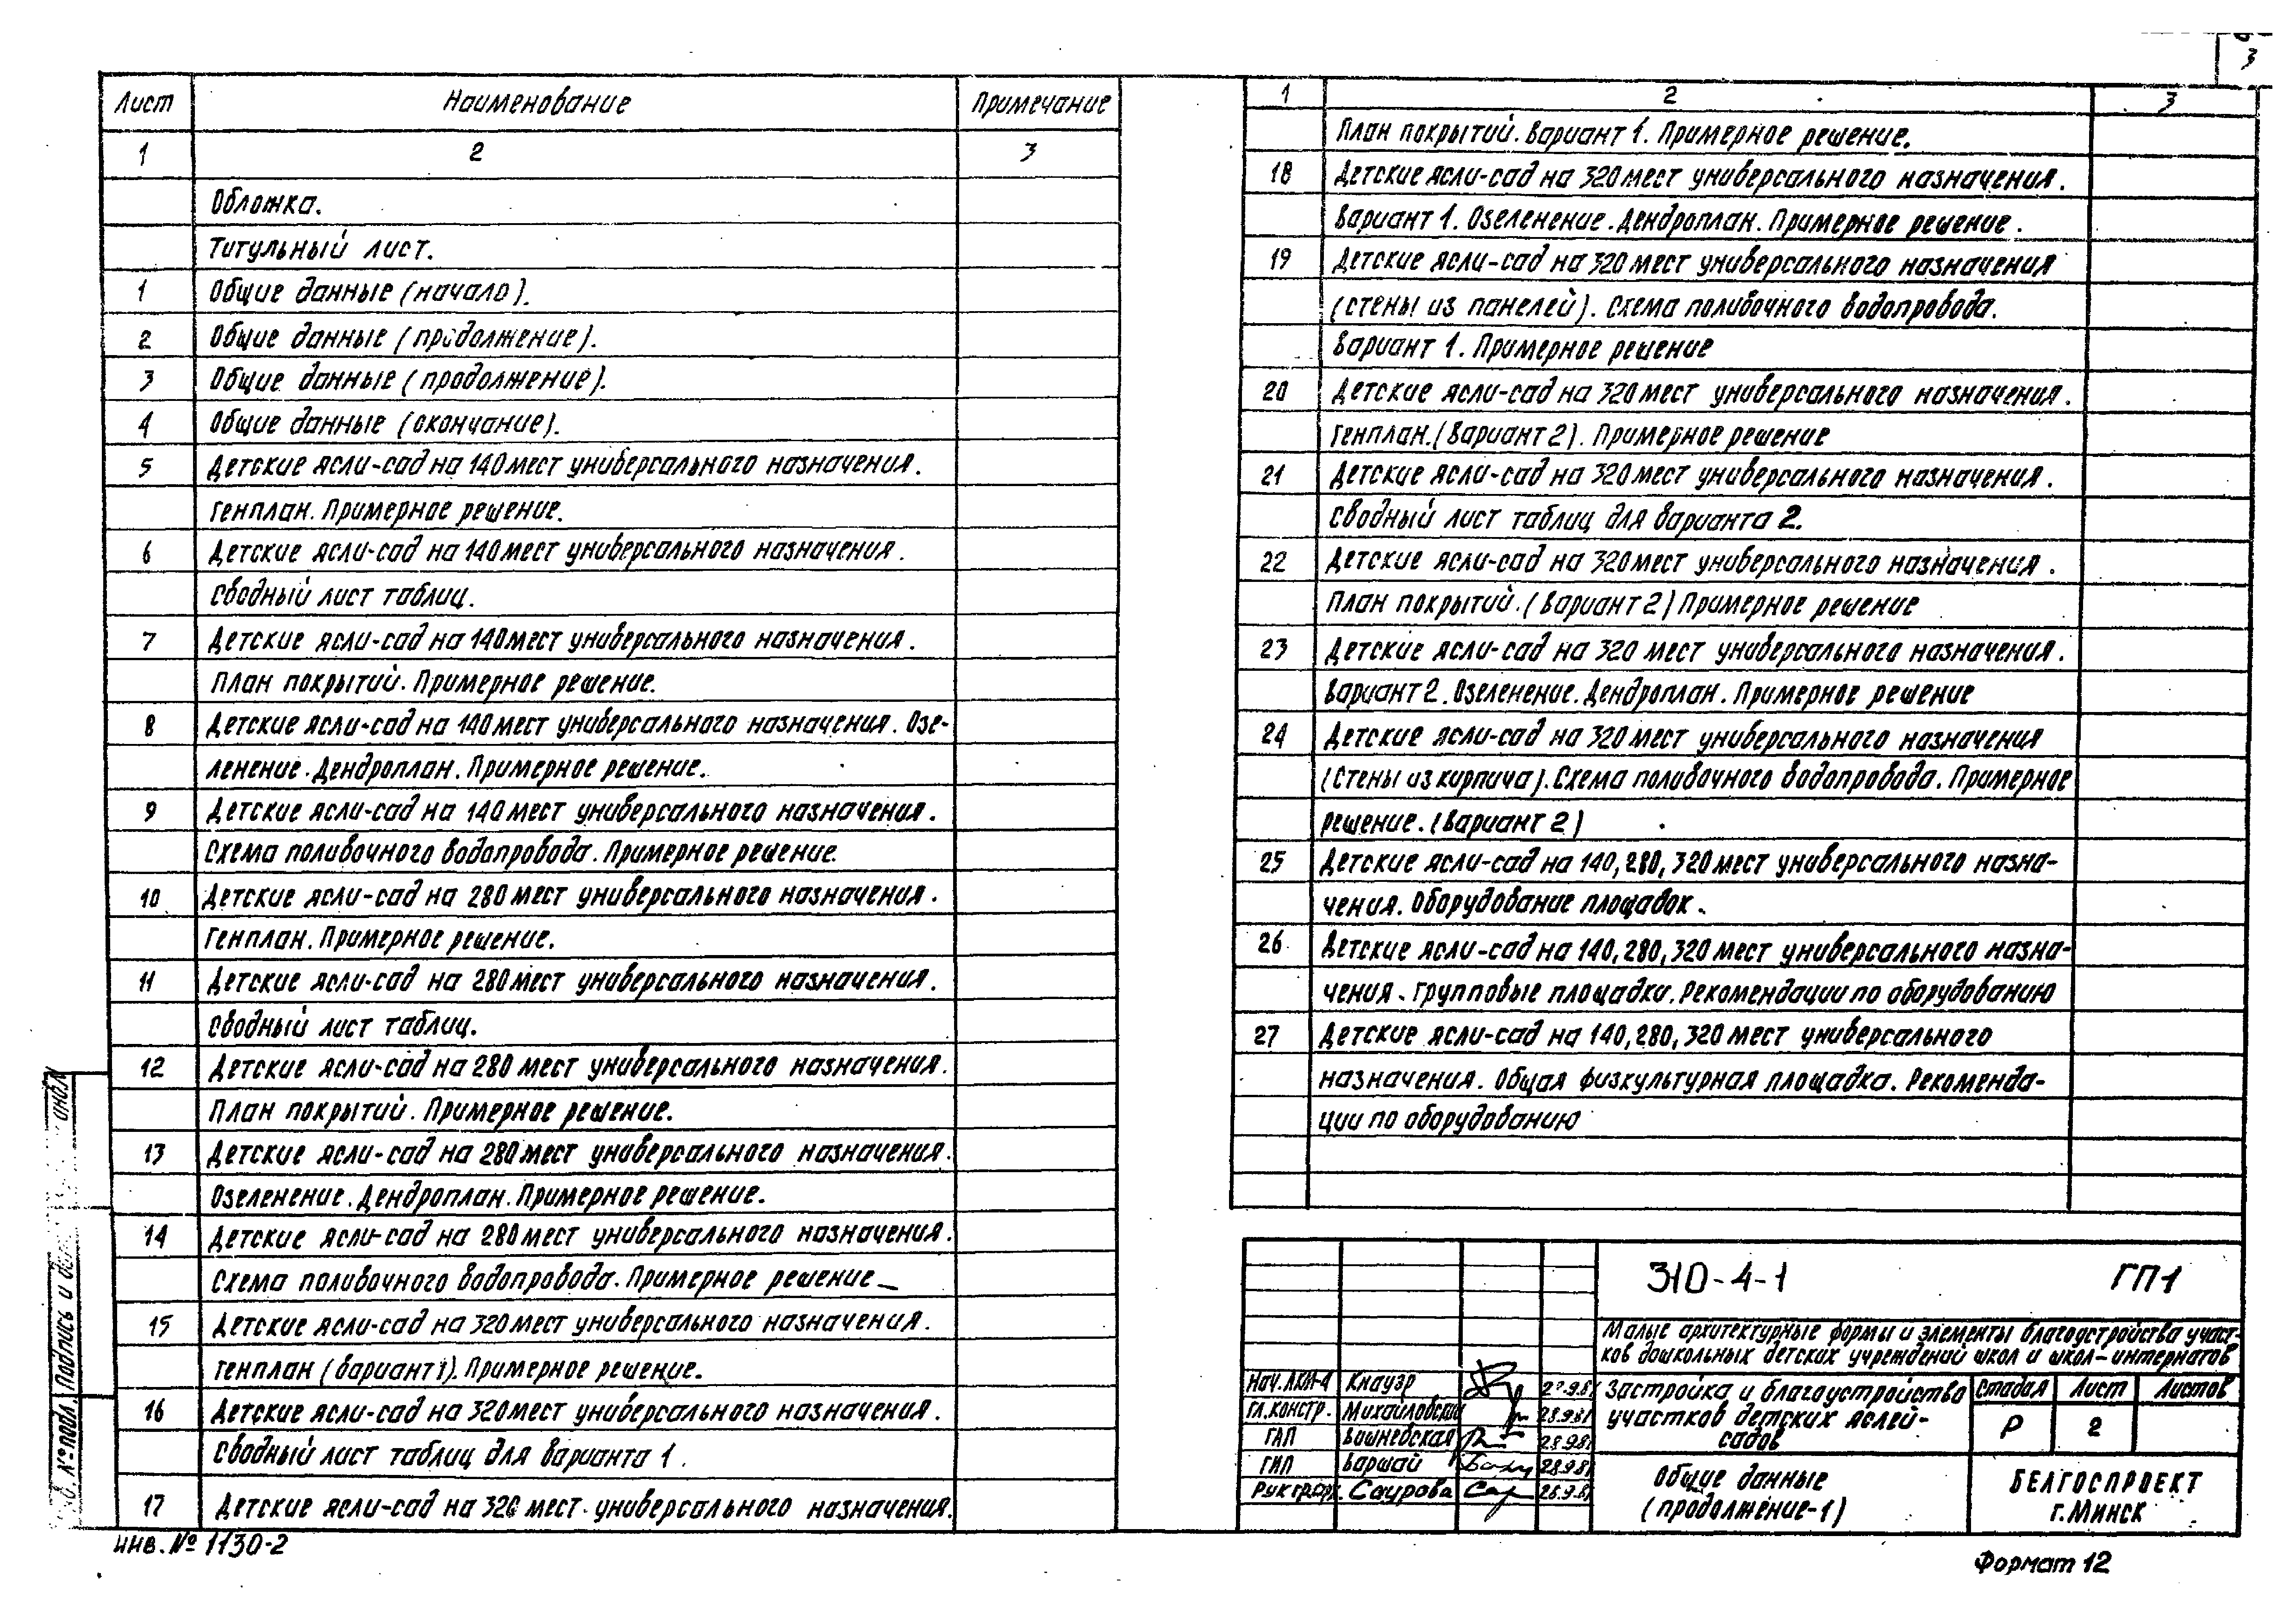 3
Лист Наименование Примечание
1 2 3
Обложка.
Титульный лист.
1 Общие данные (начало).
2 Общие данные (продолжение).
3 Общие данные (продолжение).
4 Общие данные (окончание).
5 Детские ясли-сад на 140 мест универсального назначения.
Генплан. Примерное решение.
6 Детские ясли-сад на 140 мест универсального назначения.
Сводный лист таблиц.
7 Детские ясли-сад на 140 мест универсального назначения.
План покрытий. Примерное решение.
8 Детские ясли-сад на 140 мест универсального назначения. Озе-
ленение. Дендроплан. Примерное решение.
9 Детские ясли-сад на 140 мест универсального назначения.
Схема поливочного водопровода. Примерное решение.
10 Детские ясли-сад на 280 мест универсального назначения.
Генплан. Примерное решение.
11 Детские ясли-сад на 280 мест универсального назначения.
Сводный лист таблиц.
12 Детские ясли-сад на 280 мест универсального назначения.
План покрытий. Примерное решение.
13 Детские ясли-сад на 280 мест универсального назначения.
Озеленение. Дендроплан. Примерное решение.
14 Детские ясли-сад на 280 мест универсального назначения.
Схема поливочного водопровода. Примерное решение
15 Детские ясли-сад на 320 мест универсального назначения.
Генплан (вариант 1). Примерное решение.
16 Детские ясли-сад на 320 мест универсального назначения.
Сводный лист таблиц для варианта 1.
17 Детские ясли-сад на 320 мест универсального назначения.
1 2 3
План покрытий. Вариант 1. Примерное решение.
18 Детские ясли-сад на 320 мест универсального назначения.
Вариант 1. Озеленение. Дендроплан. Примерное решение.
19 Детские ясли-сад на 320 мест универсального назначения
(стены из панелей). Схема поливочного водопровода.
Вариант 1. Примерное решение
20 Детские ясли-сад на 320 мест универсального назначения.
Генплан. (Вариант 2). Примерное решение
21 Детские ясли-сад на 320 мест универсального назначения.
Сводный лист таблиц для варианта 2.
22 Детские ясли-сад на 320 мест универсального назначения.
План покрытий. (Вариант 2) Примерное решение
23 Детские ясли-сад на 320 мест универсального назначения.
Вариант 2. Озеленение. Дендроплан. Примерное решение
24 Детские ясли-сад на 320 мест универсального назначения
(Стены из кирпича). Схема поливочного водопровода. Примерное
решение. (Вариант 2)
25 Детские ясли-сад на 140, 280, 320 мест универсального назна-
чения. Оборудование площадок.
26 Детские ясли-сад на 140, 280, 320 мест универсального назна-
чения. Групповые площадки. Рекомендации по оборудованию
27 Детские ясли-сад на 140, 280, 320 мест универсального
назначения. Общая физкультурная площадка. Рекоменда-
ции по оборудованию
310-4-1 ГП1
Малые архитектурные формы и элементы благоустройства участ-
ков дошкольных детских учреждений школ и школ-интернатов
Нач. АКМ-4 Кнауэр
Гл. констр. Михайловский 28.9.81
ГАП Вишневская 28.9.81
ГИП Варшай 28.9.81
Саурова 28.9.81
Застройка и благоустройство
участков детских яслей-
садов
Стадия Лист Листов
Р 2
Общие данные
(продолжение-1)
БЕЛГОСПРОЕКТ
г. Минск
Подпись и
№ подл.
инв. № 1130-2
Формат 12